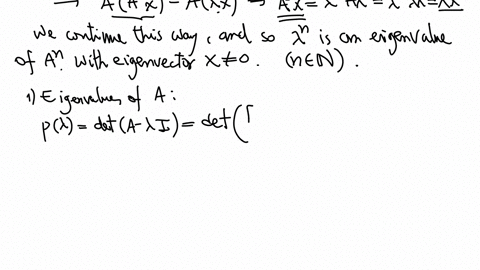 ⇒ A(Ax) = A(λx) ⇒ A²x = λ Ax = λ λx = λ²x
We continue this way, and so λⁿ is an eigenvalue
of Aⁿ. with eigenvector x≠0. (n∈ℕ).
1) Eigenvalues of A:
p(λ) = det(A-λI) = det([